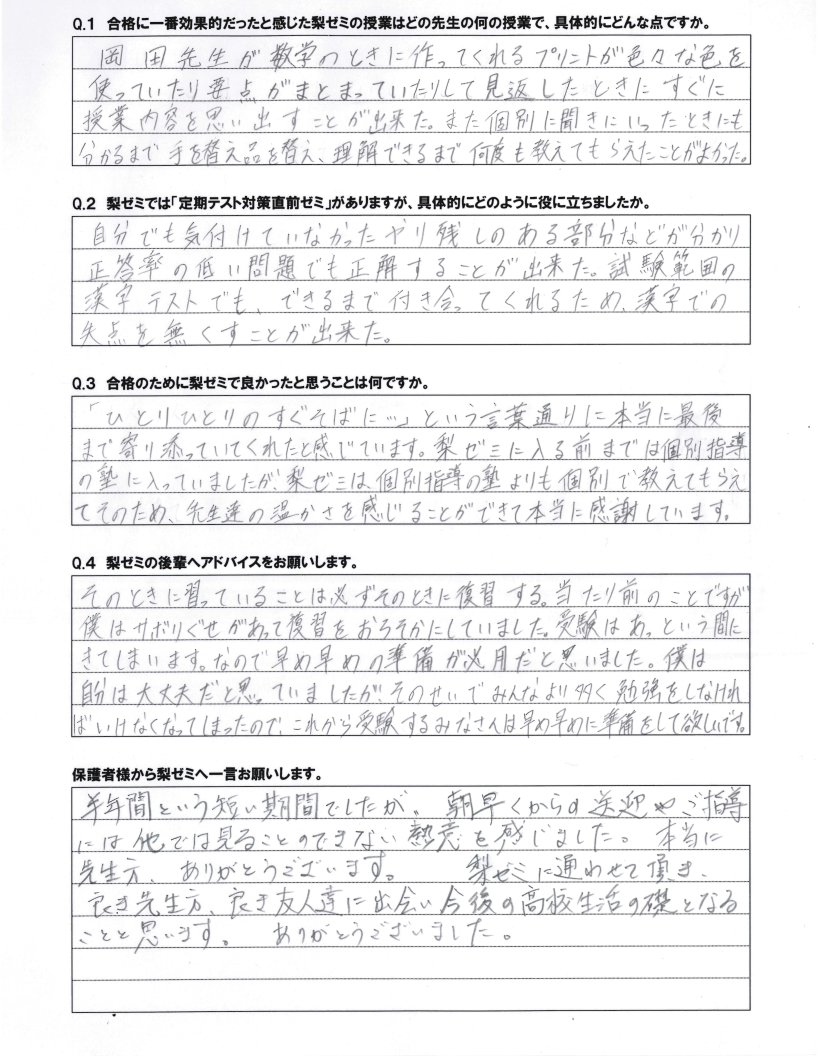 Q.1 合格に一番効果的だったと感じた梨ゼミの授業はどの先生の何の授業で、具体的にどんな点ですか。
岡田先生が数学のときに作ってくれるプリントが色々な色を
使っていたり要点がまとまっていたりして見返したときにすぐに
授業内容を思い出すことが出来た。また個別に聞きにいったときにも
分かるまで手を替え品を替え、理解できるまで何度も教えてもらえたことがよかった。
Q.2 梨ゼミでは「定期テスト対策直前ゼミ」がありますが、具体的にどのように役に立ちましたか。
自分でも気付けていなかったヤリ残しのある部分などが分かり
正答率の低い問題でも正解することが出来た。試験範囲の
漢字テストでも、できるまで付き合ってくれるため、漢字での
失点を無くすことが出来た。
Q.3 合格のために梨ゼミで良かったと思うことは何ですか。
「ひとりひとりのすぐそばに…」という言葉通りに本当に最後
まで寄り添っていてくれたと感じています。梨ゼミに入る前までは個別指導
の塾に入っていましたが、梨ゼミは個別指導の塾よりも個別で教えてもらえ
てそのため、先生達の温かさを感じることができて本当に感謝しています。
Q.4 梨ゼミの後輩へアドバイスをお願いします。
そのときに習っていることは必ずそのときに復習する。当たり前のことですが
僕はサボりぐせがあって復習をおろそかにしていました。受験はあっという間に
きてしまいます。なので早め早めの準備が必用だと思いました。僕は
自分は大丈夫だと思っていましたが、そのせいでみんなより多く勉強をしなけれ
ばいけなくなってしまったので、これから受験するみなさんは早め早めに準備をして欲しいです。
保護者様から梨ゼミへ一言お願いします。
半年間という短い期間でしたが、朝早くからの送迎やご指導
には他では見ることのできない熱意を感じました。本当に
先生方、ありがとうございます。 梨ゼミに通わせて頂き、
良き先生方、良き友人達に出会い今後の高校生活の礎となる
ことと思います。 ありがとうございました。